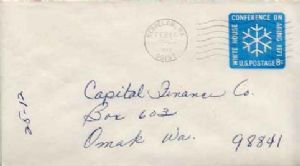 WHITE HOUSE CONFERENCE ON AGING 1971
U.S. POSTAGE 8¢
Capital Finance Co.
Box 602
Omak Wa.
98841
25-12